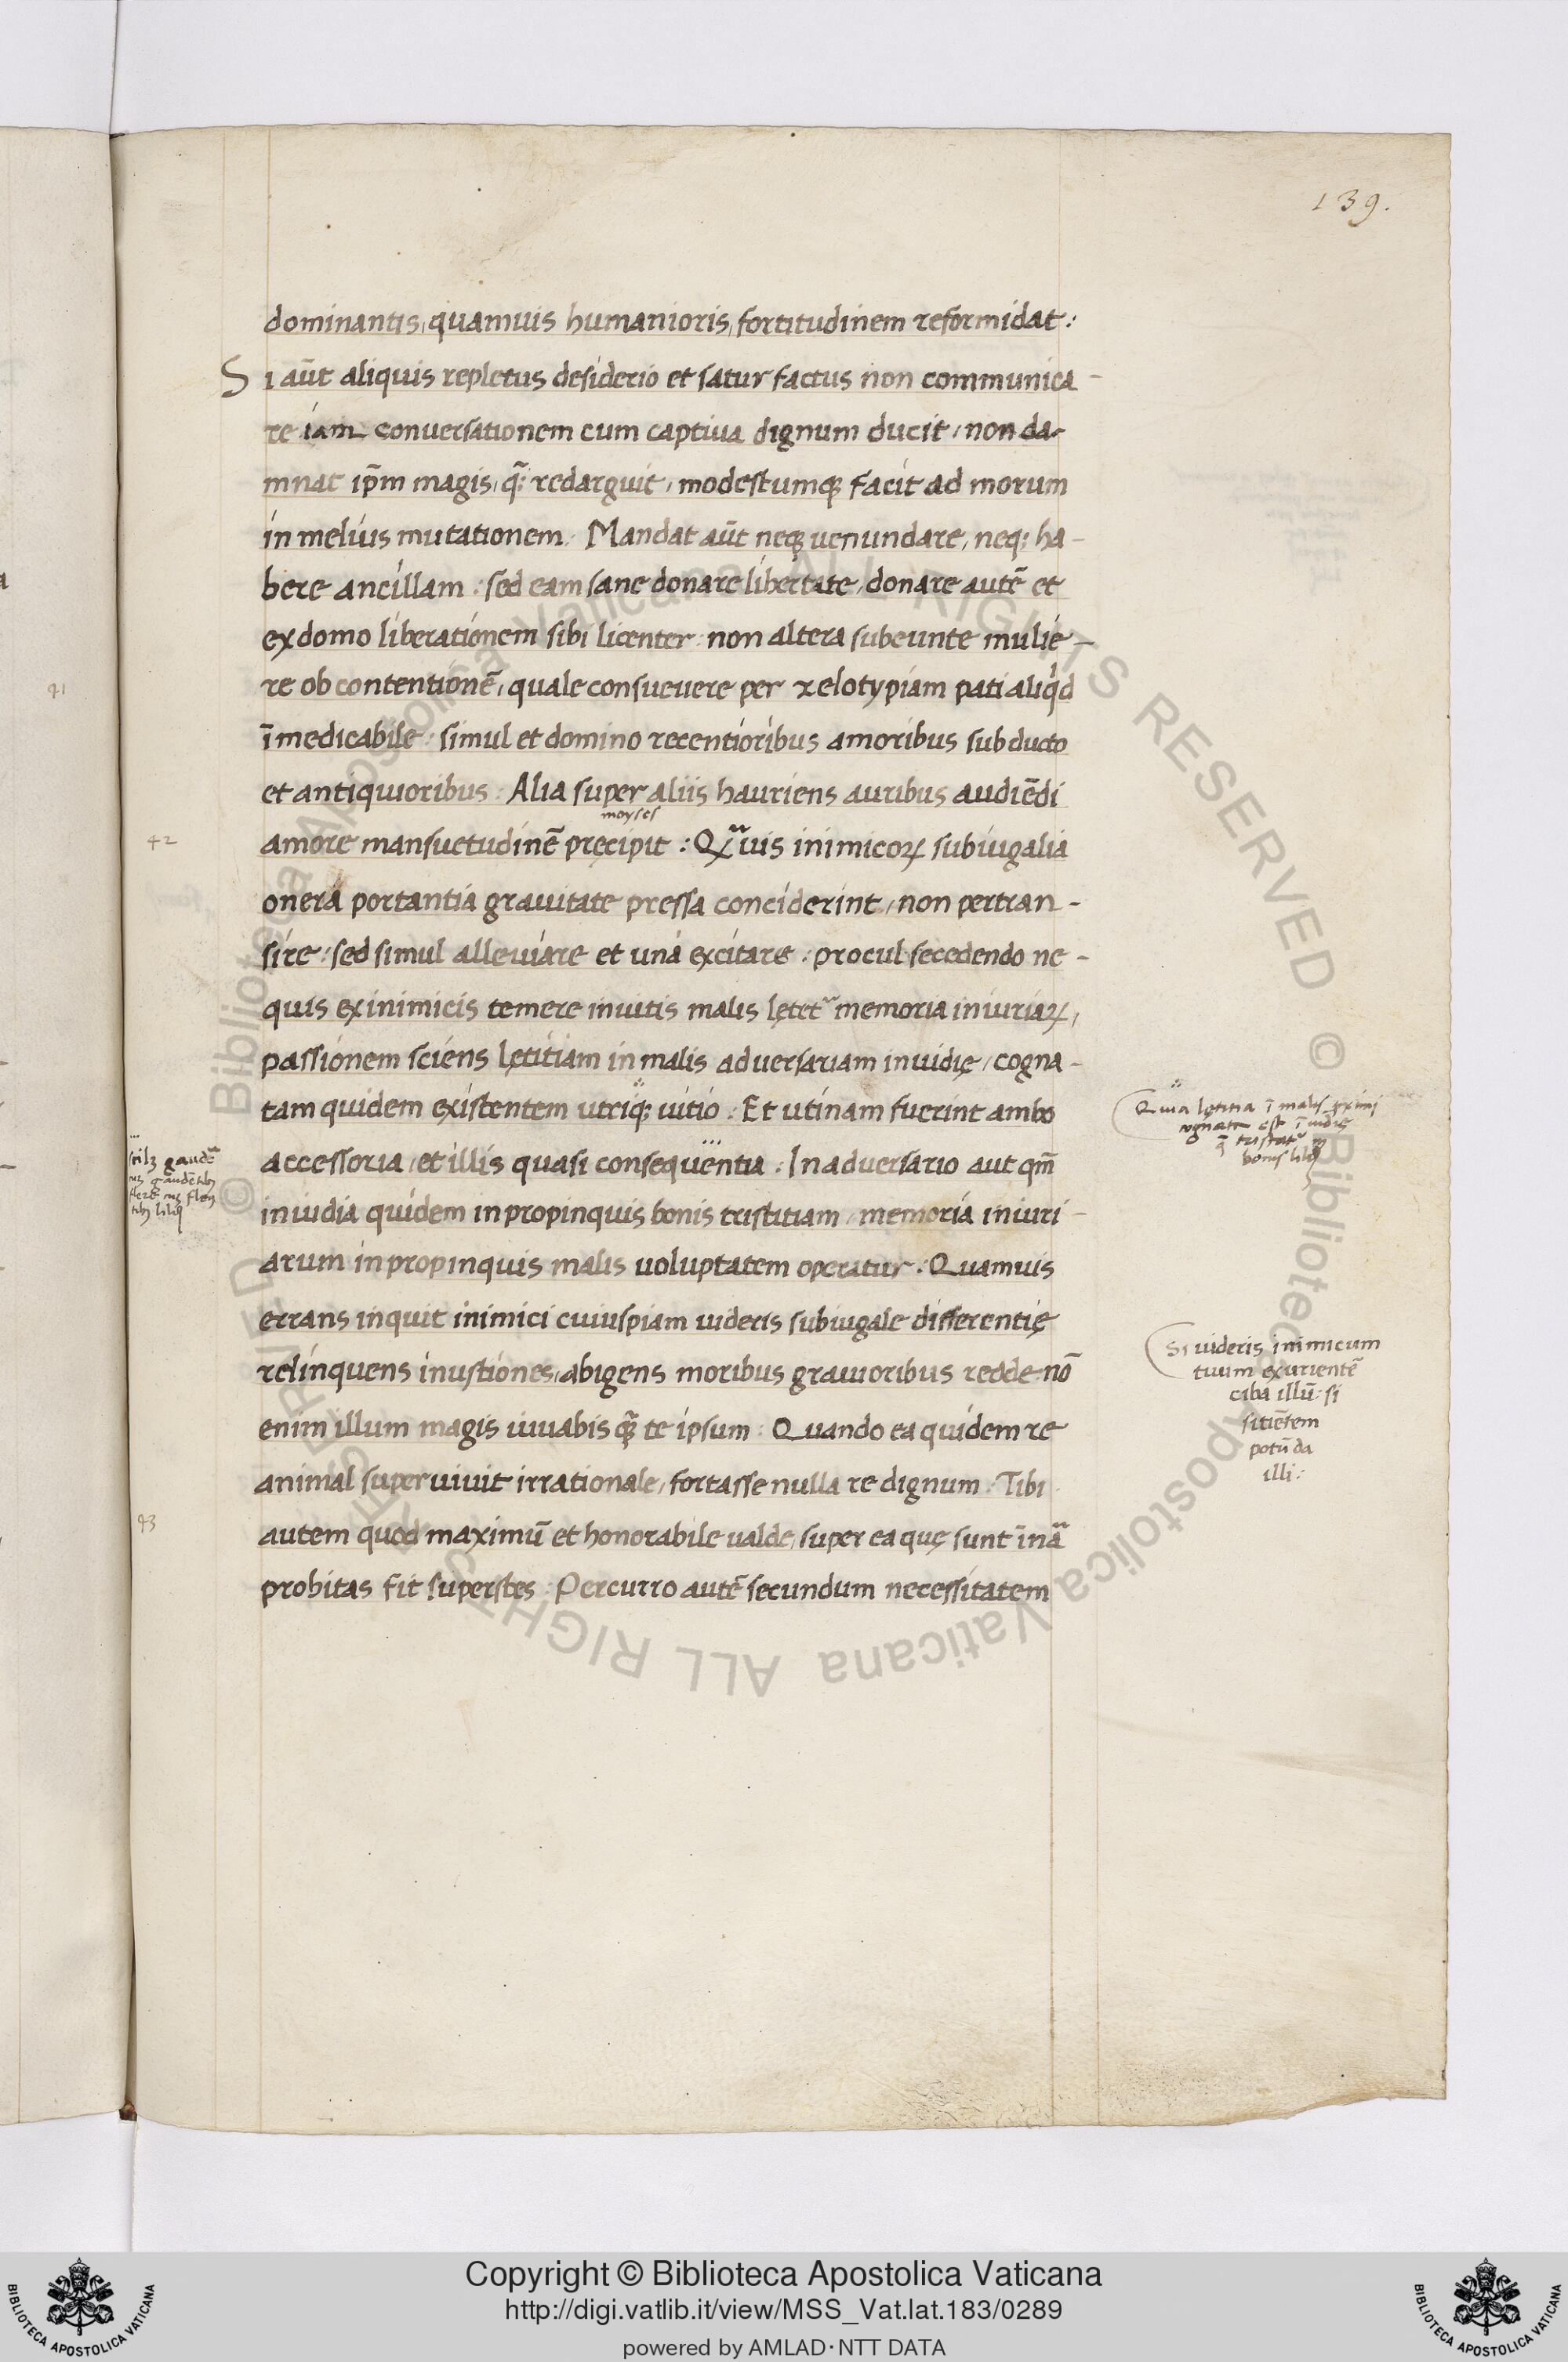 139.
dominantis, quamuis humanioris, fortitudinem reformidat:
Si aūt aliquis repletus desiderio et satur factus non communica-
re iam conuersationem cum captiua dignum ducit, non da-
mnat ip̄m magis, q̄; redarguit, modestumq; facit ad morum
in melius mutationem. Mandat aūt neq; uenundare, neq; ha-
bere ancillam: sed eam sane donare libertate, donare autē et
ex domo liberationem sibi licenter: non altera subeunte mulie-
41
re ob contentionē, quale consueuere per zelotypiam pati aliq̇d
īmedicabile: simul et domino recentioribus amoribus subducto
et antiquioribus: Alia super aliis hauriens auribus audiēdi
moyses
42
amore mansuetudinē pręcipit: Qūis inimicoꝝ subiugalia
onera portantia grauitate pressa conciderint, non pertran-
sire: sed simul alleuiare et una excitare: procul secedendo ne-
quis ex inimicis temere inuitis malis lętet memoria iniuriaꝝ,
passionem sciens lętitiam in malis aduersariam inuidię, cogna-
tam quidem existentem utriq; uitio: Et utinam fuerint ambo
Quia lętitia ī malis
cognata est īuidię
q̄ tristat
bonis
accessoria, et illis quasi consequentia: In aduersario aut qm̄
gaudē
inuidia quidem in propinquis bonis tristitiam, memoria iniuri-
arum in propinquis malis uoluptatem operatur: Quamuis
errans inquit inimici cuiuspiam uideris subiugale differentię
relinquens inustiones, abigens moribus grauioribus redde: nō
Si uideris inimicum
tuum exurientē
ciba illū: si
sitiētem
potū da
illi:
enim illum magis iuuabis q̄; te ipsum: Quando ea quidem re
animal superuiuit irrationale, fortasse nulla re dignum: Tibi
43
autem quod maximū et honorabile ualde, super ea quę sunt īnā
probitas fit superstes: Percurro autē secundum necessitatem
© Biblioteca Apostolica Vaticana ALL RIGHTS RESERVED
© Biblioteca Apostolica Vaticana ALL RIGHTS RESERVED
BIBLIOTECA APOSTOLICA VATICANA
Copyright © Biblioteca Apostolica Vaticana
http://digi.vatlib.it/view/MSS_Vat.lat.183/0289
powered by AMLAD·NTT DATA
BIBLIOTECA APOSTOLICA VATICANA